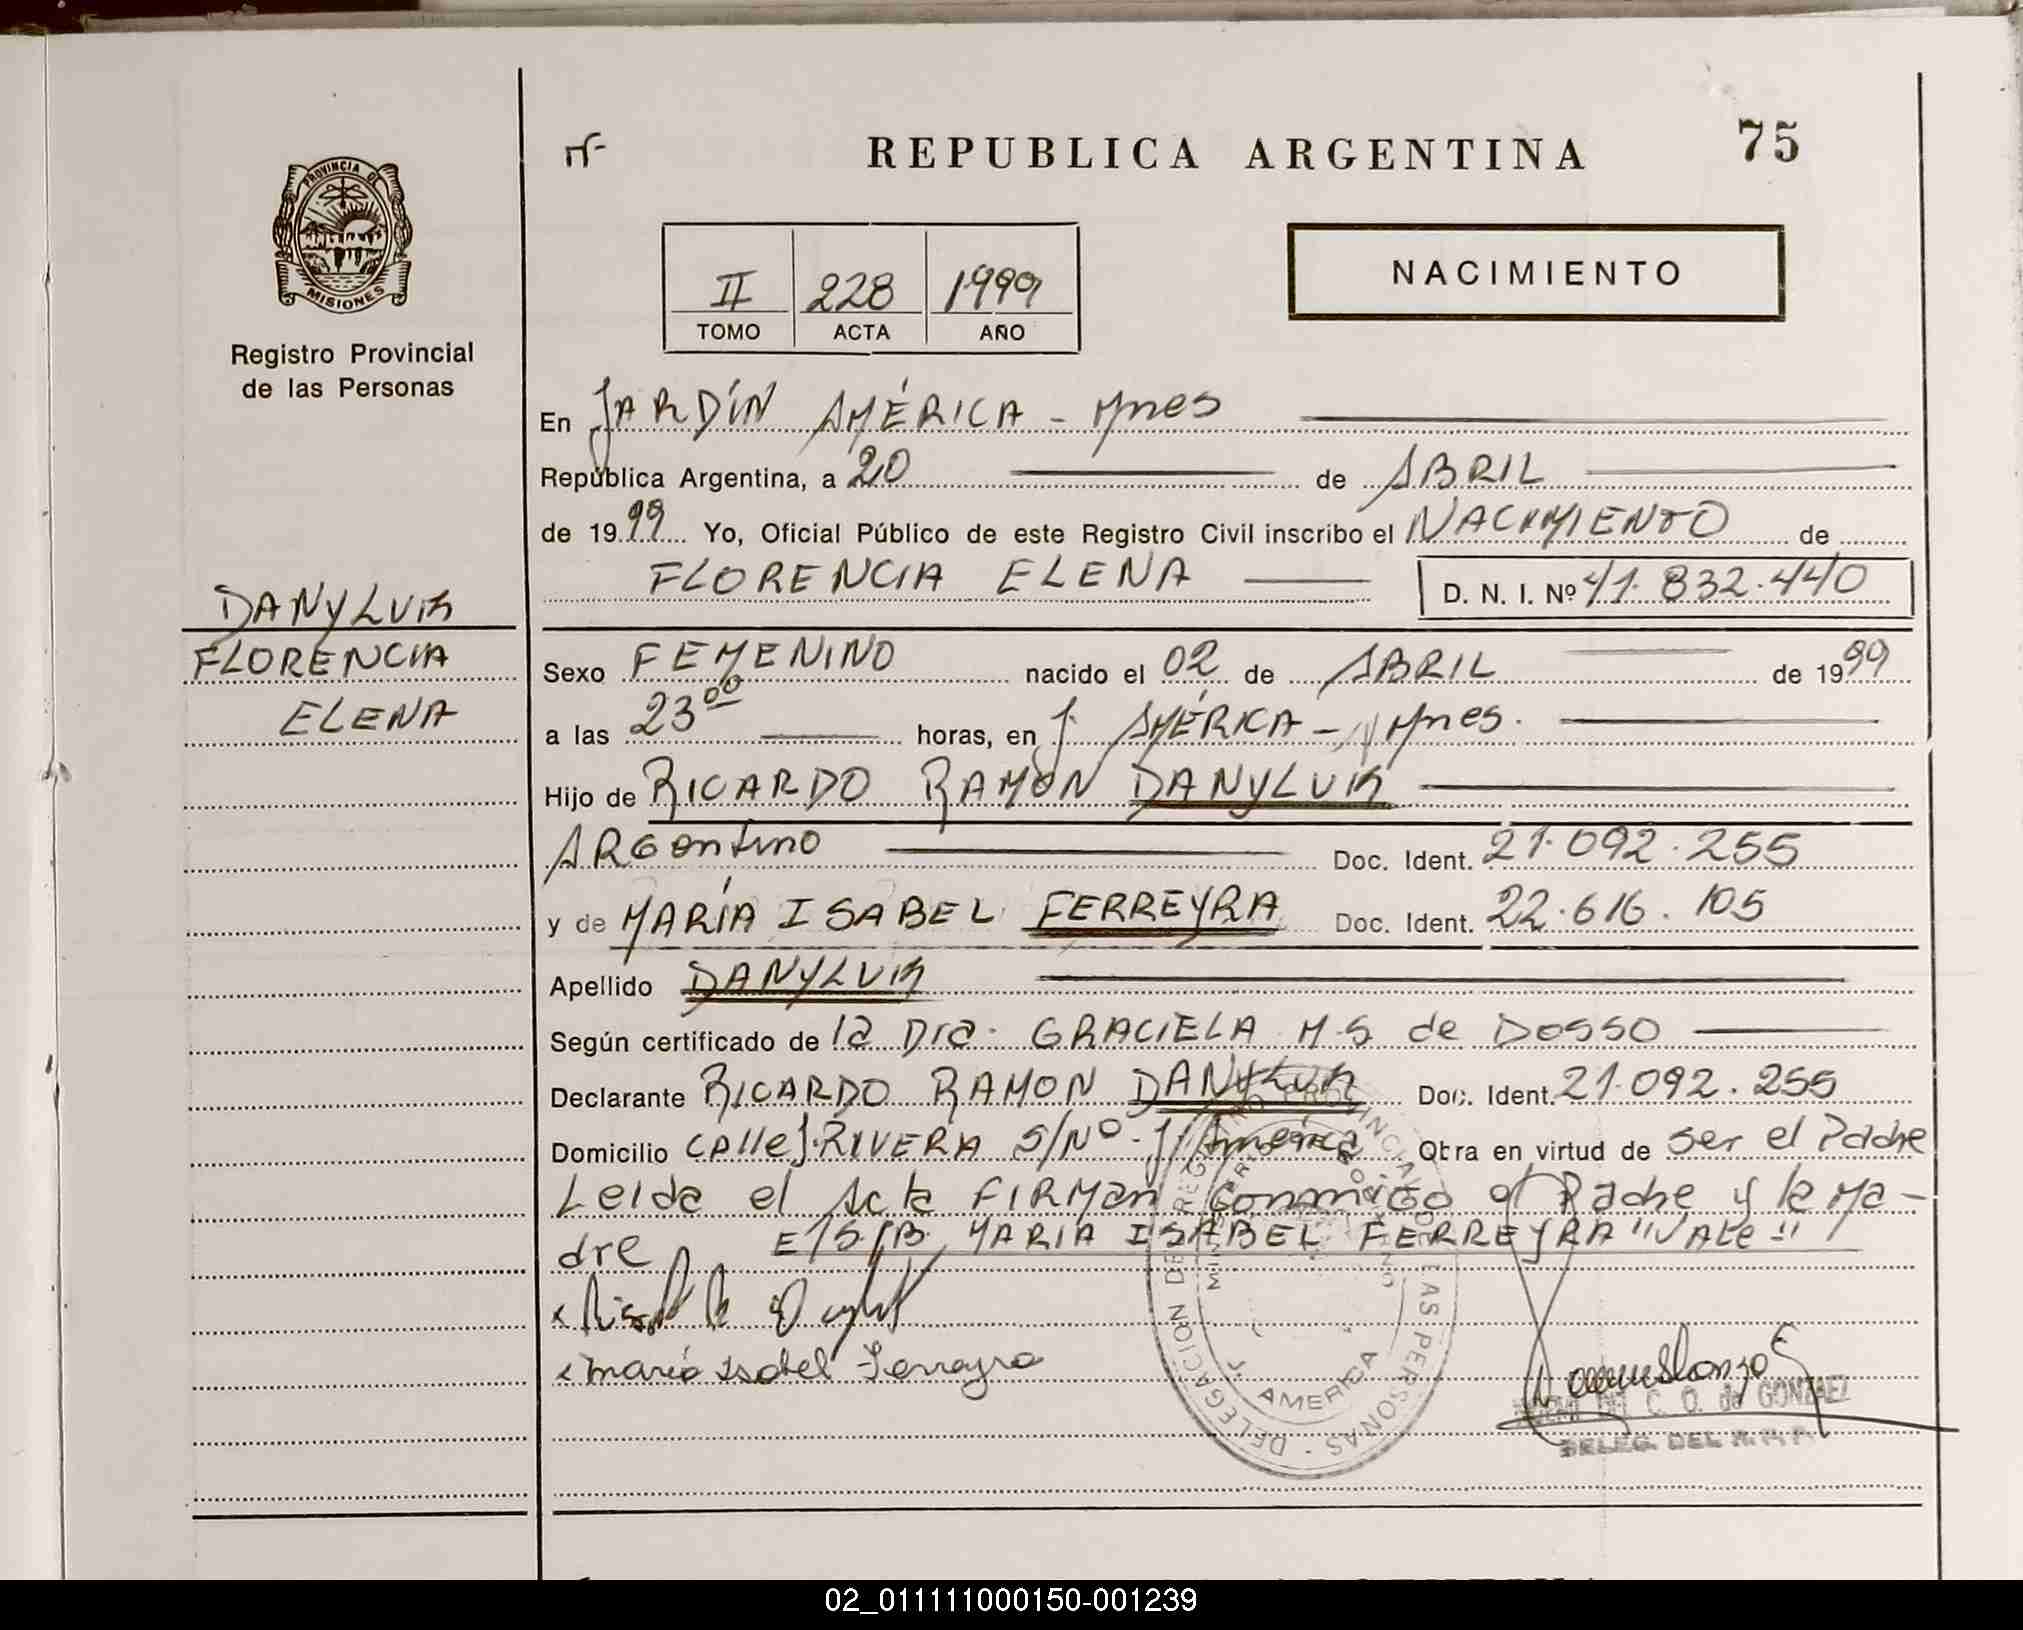 REPUBLICA ARGENTINA
75
PROVINCIA DE
MISIONES
Registro Provincial
de las Personas
II 228 1999
TOMO ACTA AÑO
NACIMIENTO
En JARDÍN AMÉRICA - Mnes
República Argentina, a 20 de ABRIL
de 1999 Yo, Oficial Público de este Registro Civil inscribo el NACIMIENTO de
FLORENCIA ELENA D. N. I. Nº 41.832.440
DANYLUK
FLORENCIA
ELENA
Sexo FEMENINO nacido el 02 de ABRIL de 1999
a las 23⁰⁰ horas, en J. AMÉRICA - Mnes.
Hijo de RICARDO RAMON DANYLUK
ARGentino Doc. Ident. 21.092.255
y de MARÍA ISABEL FERREYRA Doc. Ident. 22.616.105
Apellido DANYLUK
Según certificado de la Dra. GRACIELA M.S de DOSSO
Declarante RICARDO RAMON DANYLUK Doc. Ident. 21.092.255
Domicilio CAlle J.RIVERA S/Nº - J. América Obra en virtud de ser el Padre
Leida el Acta FIRMan Conmigo el Padre y la Ma-
dre E/S/B MARIA ISABEL FERREYRA "Vale"
Maria Isabel Ferreyra
DELEGACION DE REGISTRO PROVINCIAL DE LAS PERSONAS
J. AMERICA
C. O. de GONZALEZ
DELEG. DEL R.P.P.
02_011111000150-001239